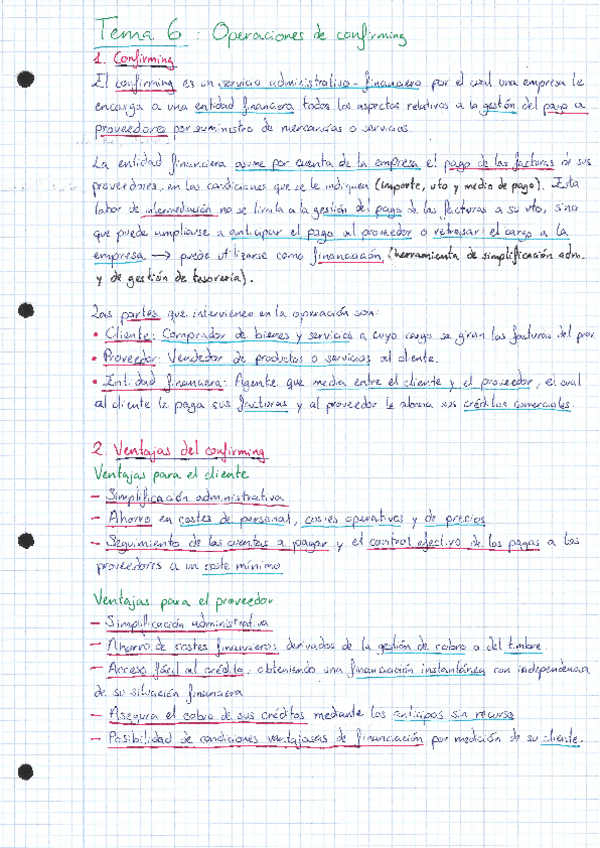 Tema 6 : Operaciones de confirming
1. Confirming
El confirming es un servicio administrativo-financiero por el cual una empresa le
encarga a una entidad financiera todos los aspectos relativos a la gestión del pago a
proveedores por suministro de mercancías o servicios.
La entidad financiera asume por cuenta de la empresa el pago de las facturas de sus
proveedores, en las condiciones que se le indiquen (importe, vto y medio de pago). Esta
labor de intermediación no se limita a la gestión del pago de las facturas a su vto, sino
que puede ampliarse a anticipar el pago al proveedor o retrasar el cargo a la
empresa → puede utilizarse como financiación (herramienta de simplificación adm.
y de gestión de tesorería).
Las partes que intervienen en la operación son:
• Cliente: Comprador de bienes y servicios a cuyo cargo se giran las facturas del prov.
• Proveedor: Vendedor de productos o servicios al cliente.
• Entidad financiera: Agente que media entre el cliente y el proveedor, el cual
al cliente le paga sus facturas y al proveedor le abona sus créditos comerciales.
2. Ventajas del confirming
Ventajas para el cliente
- Simplificación administrativa
- Ahorro en costes de personal, costes operativos y de precios
- Seguimiento de las cuentas a pagar y el control efectivo de los pagos a los
proveedores a un coste mínimo
Ventajas para el proveedor
- Simplificación administrativa
- Ahorro de costes financieros: derivados de la gestión de cobro o del timbre.
- Acceso fácil al crédito, obteniendo una financiación instantánea con independencia
de su situación financiera
- Asegura el cobro de sus créditos mediante los anticipos sin recurso
- Posibilidad de condiciones ventajosas de financiación por medición de su cliente.